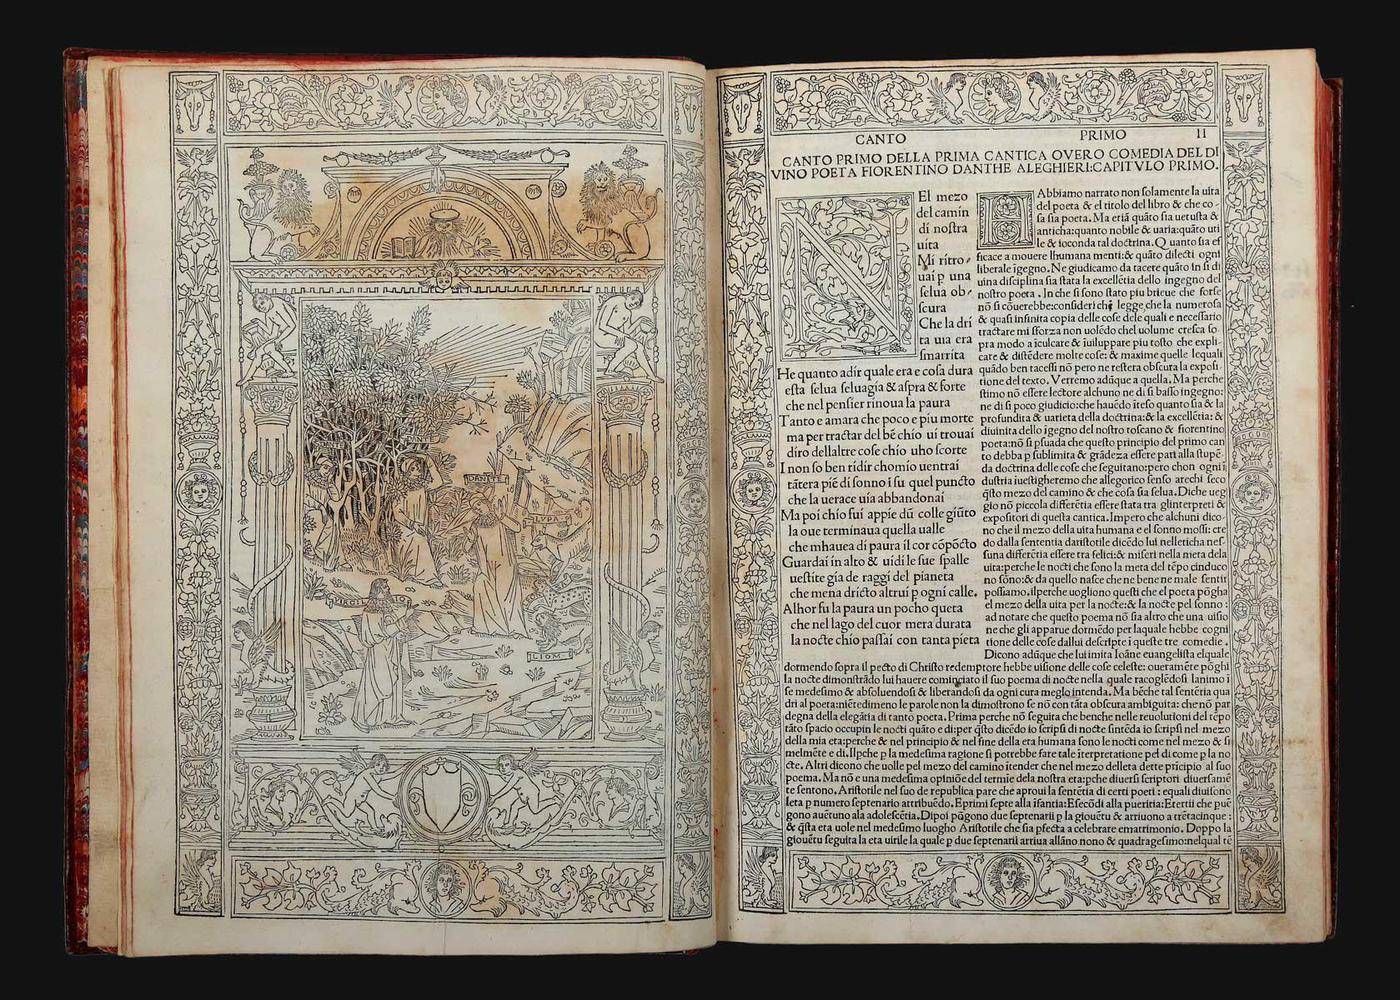 DANTE
LVPA
VIRGILIO
LIOM
CANTO PRIMO II
CANTO PRIMO DELLA PRIMA CANTICA OVERO COMEDIA DEL DI
VINO POETA FIORENTINO DANTHE ALEGHIERI:CAPITVLO PRIMO.
N
El mezo
del camin
di nostra
uita
Mi ritro
uai p una
selua ob
scura
Che la dri
ta uia era
smarrita
He quanto adir quale era e cosa dura
esta selua seluagia & aspra & forte
che nel pensier rinoua la paura
Tanto e amara che poco e piu morte
ma per tractar del bẽ chio ui trouai
diro dellaltre cose chio uho scorte
I non so ben ridir chomio uentrai
tãtera piẽ di sonno ĩ su quel puncto
che la uerace uia abbandonai
Ma poi chio fui appie dũ colle giũto
la oue terminaua quella ualle
che mhauea di paura il cor cõpõcto
Guardai in alto & uidi le sue spalle
uestite gia de raggi del pianeta
che mena dricto altrui p ogni calle.
Alhor fu la paura un pocho queta
che nel lago del cuor mera durata
la nocte chio passai con tanta pieta
Abbiamo narrato non solamente la uita
del poeta & el titolo del libro & che co-
sa sia poeta. Ma etiã quãto sia uetusta &
anticha:quanto nobile & uaria:quãto uti
le & ioconda tal doctrina. Quanto sia ef
ficace a mouere lhumana menti:& quãto dilecti ogni
liberale igegno. Ne giudicamo da tacere quãto in si di
uina disciplina sia stata la excellẽtia dello ingegno del
nostro poeta. In che si sono stato piu brieue che forse
nõ si cõuerebbe:consideri chi legge che la numerosa
& quasi infinita copia delle cose dele quali e necessario
tractare mi sforza non uolẽdo chel uolume cresca so
pra modo a iculcare & iuiluppare piu tosto che expli-
care & distẽdere molte cose: & maxime quelle lequali
quãdo ben tacessi nõ pero ne restera obscura la exposi
tione del texto. Verremo adũque a quella. Ma perche
stimo nõ essere lectore alchuno ne di si basso ingegno:
ne di si poco giudicio:che hauẽdo iteso quanto sia & la
profundita & uarieta della doctrina:& la excellẽtia: &
diuinita dello igegno del nostro toscano & fiorentino
poeta:nõ si psuada che questo principio del primo can
to debba p sublimita & grãdeza essere pari alla stupẽ-
da doctrina delle cose che seguitano:pero chon ogni ĩ
dustria iuestigheremo che allegorico senso arechi seco
q̃sto mezo del camino & che cosa sia selua. Diche ueg
gio nõ piccola differẽtia essere stata tra glinterpreti &
expositori di questa cantica. Impero che alchuni dico-
no che il mezo della uita humana e el sonno mossi: cre
do dalla sententia daristotile dicẽdo lui nellethica nes-
suna differẽtia essere tra felici:& miseri nella meta dela
uita:perche le nocti che sono la meta del tẽpo cinduco
no sõno:& da quello nasce che ne bene ne male sentir
possiamo. ilperche uogliono questi che el poeta põgha
el mezo della uita per la nocte:& la nocte pel sonno :
ad notare che questo poema nõ sia altro che una uisio
ne che gli apparue dormẽdo per laquale hebbe cogni
tione delle cose dallui descripte ĩ queste tre comedie.
Dicono adũque che luimita Ioãne euangelista elquale
dormendo sopra il pecto di Christo redemptore hebbe uisione delle cose celeste: oueramẽre põghi
la nocte dimonstrãdo lui hauere cominciato il suo poema di nocte nella quale racoglẽdosi lanimo ĩ
se medesimo & absoluendosi & liberandosi da ogni cura meglo intenda. Ma bẽche tal sentẽria qua
dri al poeta:niẽtedimeno le parole non la dimostrono se nõ con tãta obscura ambiguita: che nõ par
degna della elegãtia di tanto poeta. Prima perche nõ seguita che benche nelle reuolutioni del tẽpo
tãto spacio occupin le nocti quãto e di:per q̃sto dicẽdo io scripsi di nocte sintẽda io scripsi nel mezo
della mia eta:perche & nel principio & nel fine della eta humana sono le nocti come nel mezo & si
melmẽte e di. Ilpche p la medesima ragione si potrebbe fare tale iterpretatione pel di come p la no
cte. Altri dicono che uolle pel mezo del camino itender che nel mezo delleta dette pricipio al suo
poema. Ma nõ e una medesima opiniõe del termie dela nostra eta:pche diuersi scriptori diuersamẽ
te sentono. Aristotile nel suo de republica pare che aproui la sentẽtia di certi poeti : equali diuisono
leta p numero septenario attribuẽdo. Eprimi septe alla ifantia:Esecõdi alla pueritia:Etertii che puẽ
gono auẽtuno ala adolescẽtia. Dipoi põgono due septenarii p la giouẽtu & arriuono a trẽtacinque :
& q̃sta eta uole nel medesimo luogho Aristotile che sia pfecta a celebrare ematrimonio. Doppo la
giouẽtu seguita la eta uirile la quale p due septenarii arriua allãno nono & quadragesimo:nelqual tẽ